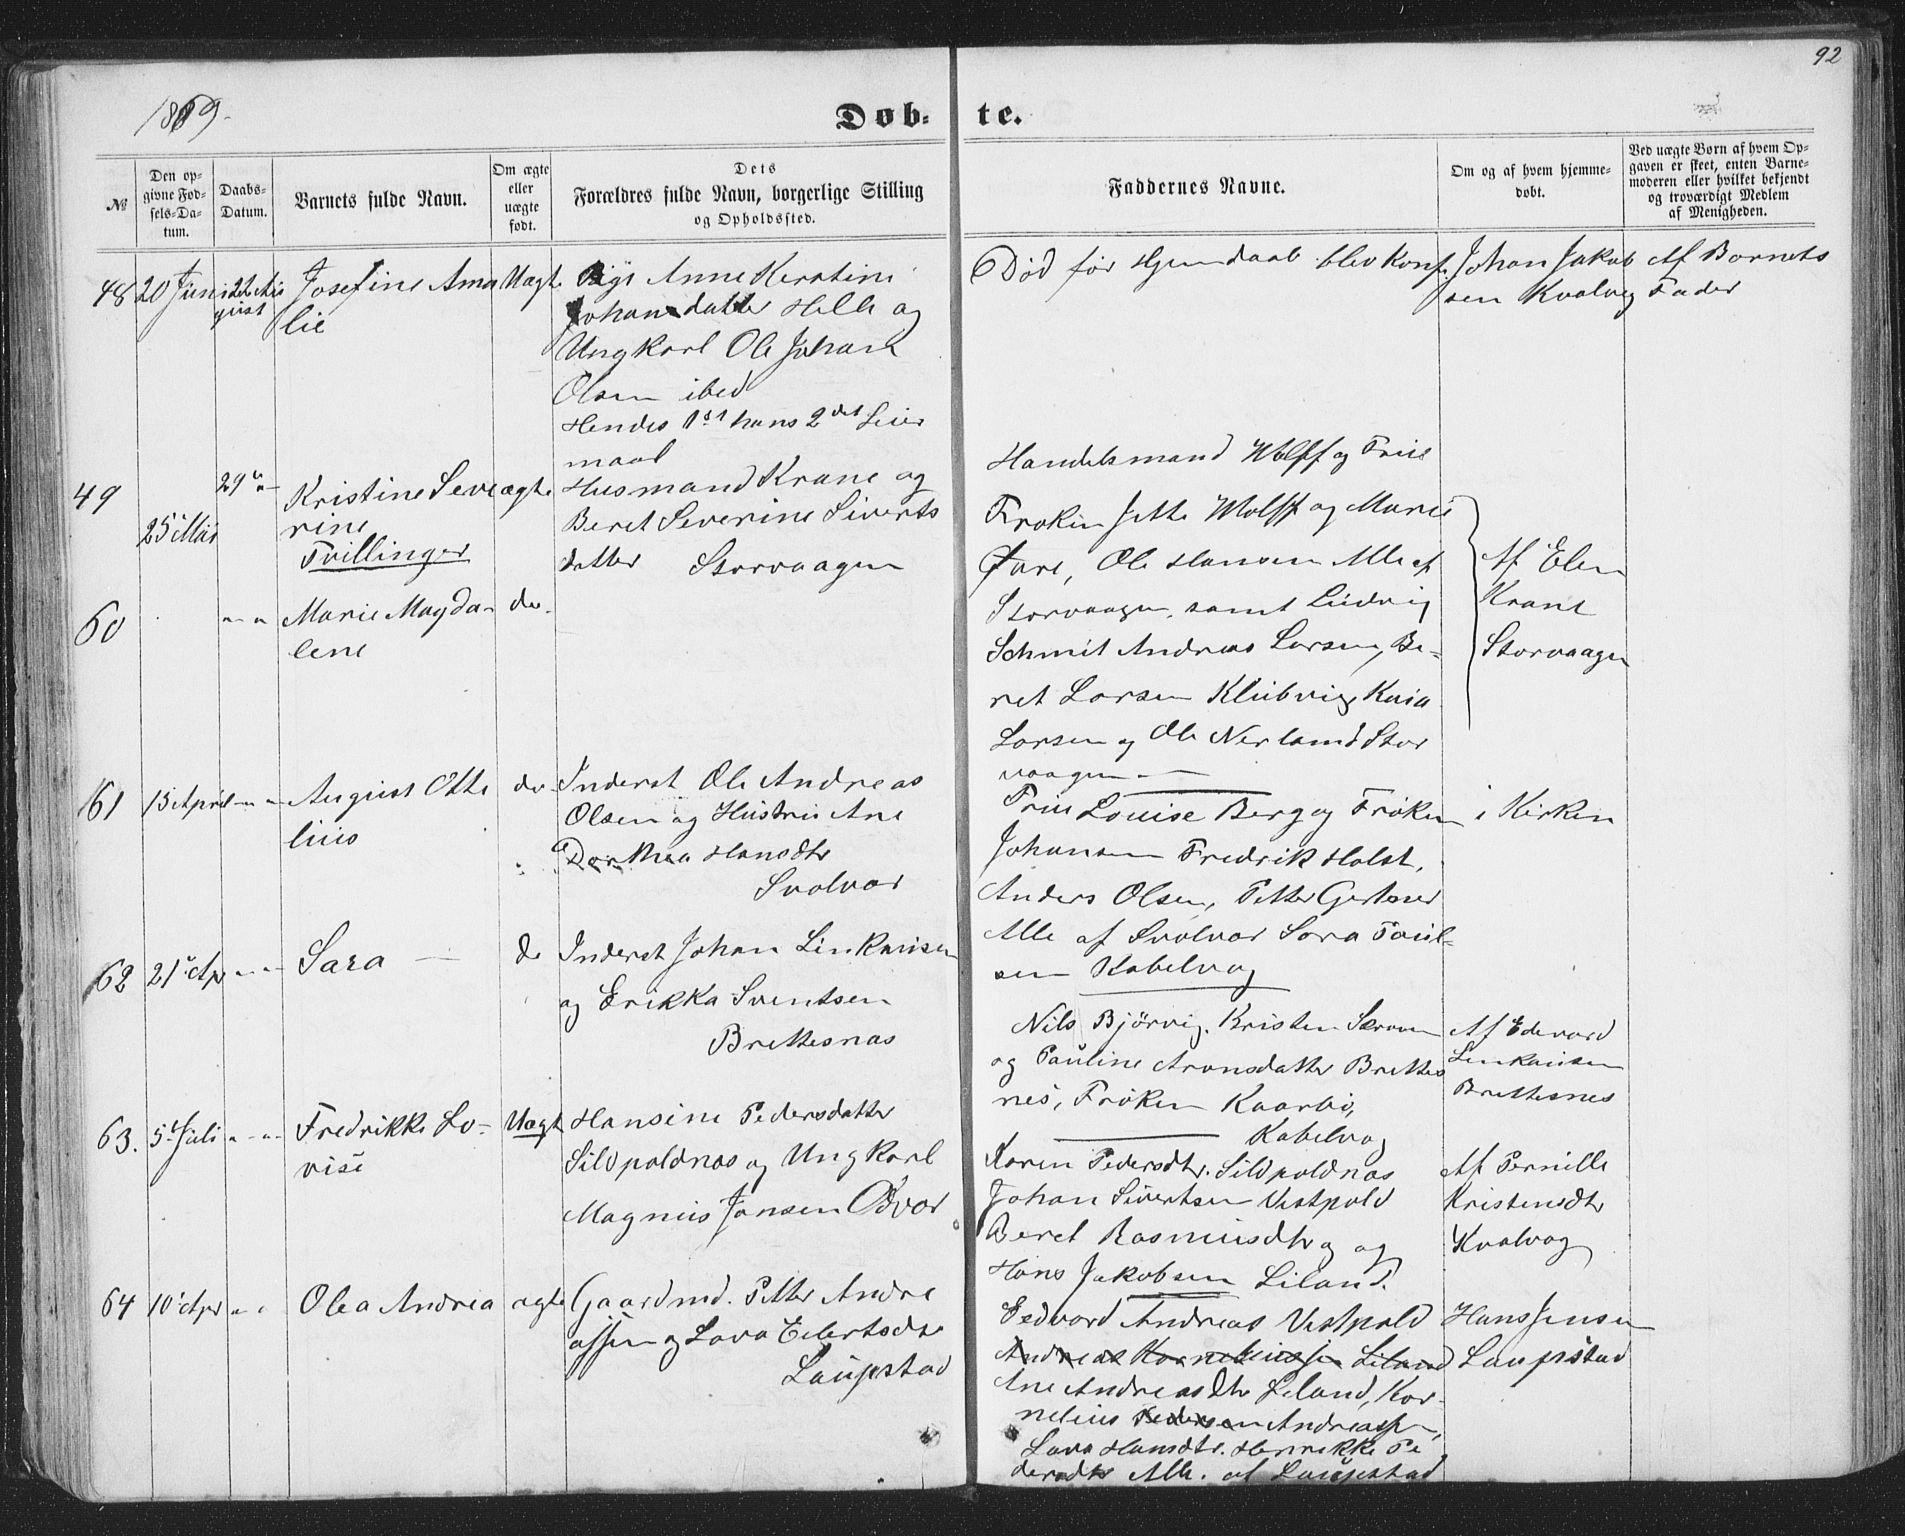 92
1869.
Døb- te.
№
Den op-
givne Fød-
sels-Da-
tum.
Daabs-
Datum.
Barnets fulde Navn.
Om ægte
eller
uægte
født.
Dets
Forældres fulde Navn, borgerlige Stilling
og Opholdssted.
Faddernes Navne.
Om og af hvem hjemme-
døbt.
Ved uægte Børn af hvem Op-
gaven er skeet, enten Barne-
moderen eller hvilket bekjendt
og troværdigt Medlem
af Menigheden.
48 20 Juni 22 Au
gust
Josefine Ama
lie
Uægte
Pige Anne Kerstine
Johansdatter Helle og
Ungkarl Ole Johan
Olsen ibed
Hendes 1st hans 2det Leier
maal
Død før Hjemdaab blev konf.
Johan Jakob
sen Kvalvig
Af Barnets
Fader
49
25 Mai
29 "
Kristine Seve
rine
Tvillinger
ægte
Husmand Krane og
Beret Severine Siverts
datter Storvaagen
Handelsmand Wolff og Frue
Frøken Jette Wolff og Marie
Ole Hansen Alle af
Storvaagen, samt Ludvig
Schmit Andreas Larsen, Be-
ret Larsen
Larsen og Ole Nerland Stor
vaagen
Af Elen
Krane
Storvaagen
60
" "
Marie Magda-
lene
do.
61 15 April " "
August Otte
lius
do
Inderst Ole Andreas
Olsen og Hustru Ane
Dorthea Hansdtr
Svolvær
Frue Louise Berg og Frøken
Johansen Fredrik Holst,
Anders Olsen, Petter Gertner
Alle af Svolvær Sara Paul-
sen Kabelvag
i Kirken
62 21 Apr " "
Sara
do
Inderst Johan Linkausen
og Erikka Sventsen
Brettesnæs
Nils Bjørvig. Kristen
og Pauline Aronsdatter Brettes
nes, Frøken Kaarbø,
Kabelvag
Af Edevard
Linkausen
Brettesnes
63. 5 Juli " "
Fredrikke Lo-
vise
Uægte
Hansine Pedersdatter
Sildpoldnæs og Ungkarl
Magnus Jansen
Karen Pedersdtr. Sildpoldnæs
Johan Sivertsen Vestpold
Beret Rasmusdtr og
Hans Jakobsen Liland.
Af Pernille
Kristensdtr
Kvalvag
64 10 Apr " "
Olea Andrea
ægte
Gaardmd. Petter Andre
assen og Lava Eilertsdtr
Laupstad
Eedvard Andreas Vestpold
Andreas Korneliussen Liland
Ane Andreasdtr Liland, Kor-
nelius Pedersen Andreassen,
Lava Hansdtr. Henrikke Pe
dersdtr Alle. af Laupstad
Hans Jensen
Laupstad